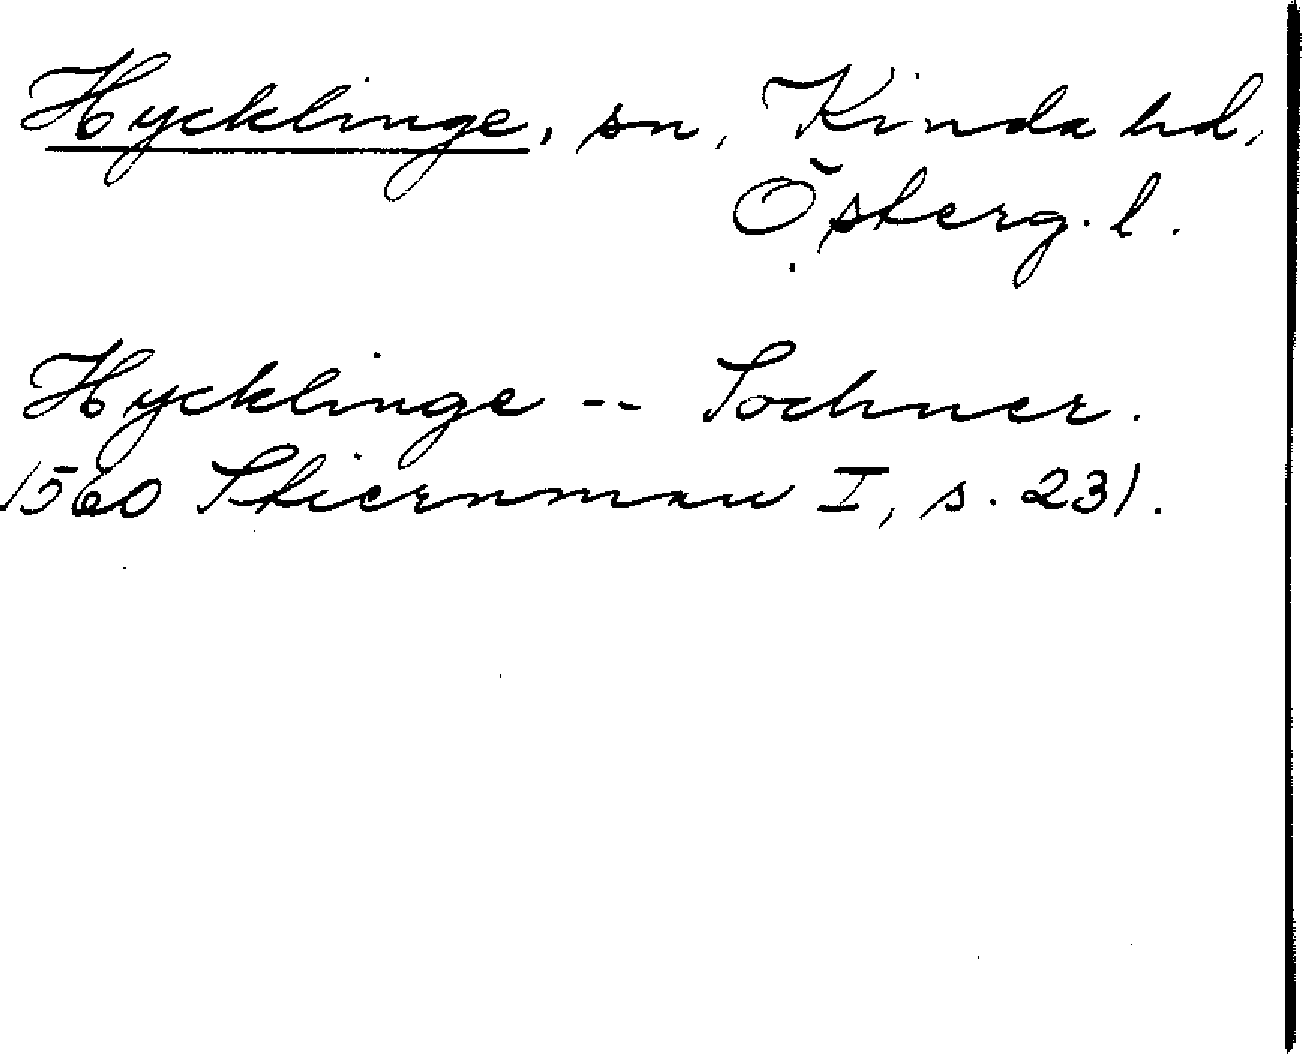 Hycklinge, sn, Kinda hd,
Österg. l.
Hycklinge -- Sochner.
1560 Stiernman I, s. 231.